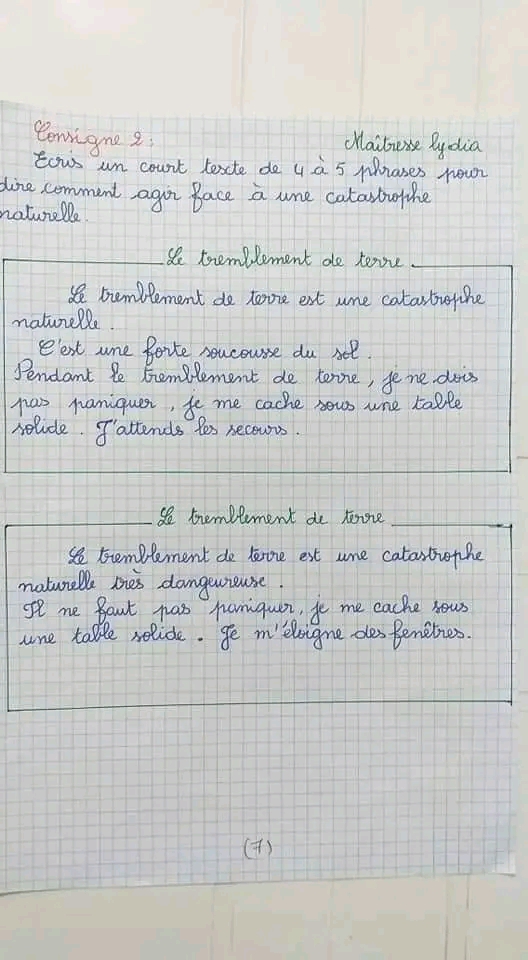 Consigne 2 :
Maîtresse lydia
Ecris un court texte de 4 à 5 phrases pour
dire comment agir face à une catastrophe
naturelle.
Le tremblement de terre
Le tremblement de terre est une catastrophe
naturelle.
C'est une forte soucousse du sol.
Pendant le tremblement de terre, je ne dois
pas paniquer, je me cache sous une table
solide. J'attends les secours.
Le tremblement de terre
Le tremblement de terre est une catastrophe
naturelle très dangeureuse.
Il ne faut pas paniquer, je me cache sous
une table solide. Je m'éloigne des fenêtres.
(7)